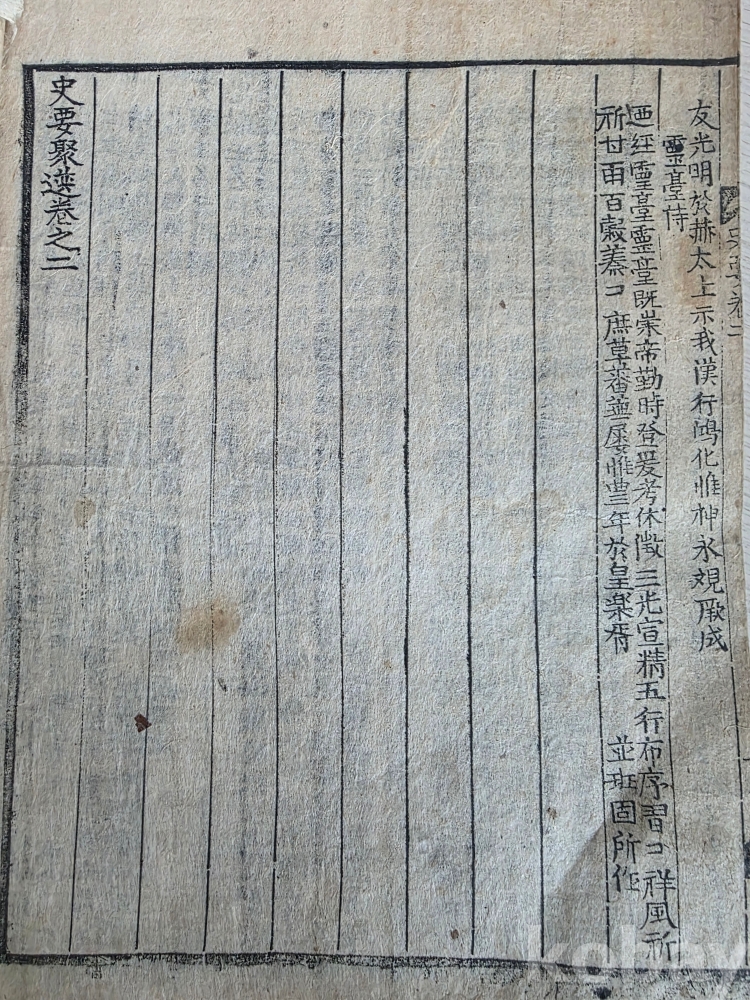 史要卷二
友光明於赫太上示我漢行鴻化惟神永覌厥成
靈臺侍
廼経靈臺靈臺既崇帝勤時登爰考休徵三光宣精五行布序習コ祥風祈
祈甘雨百穀蓁コ庶草蕃蕪屢惟豊年於皇樂胥 並班固所作
史要聚選卷之二
kobay